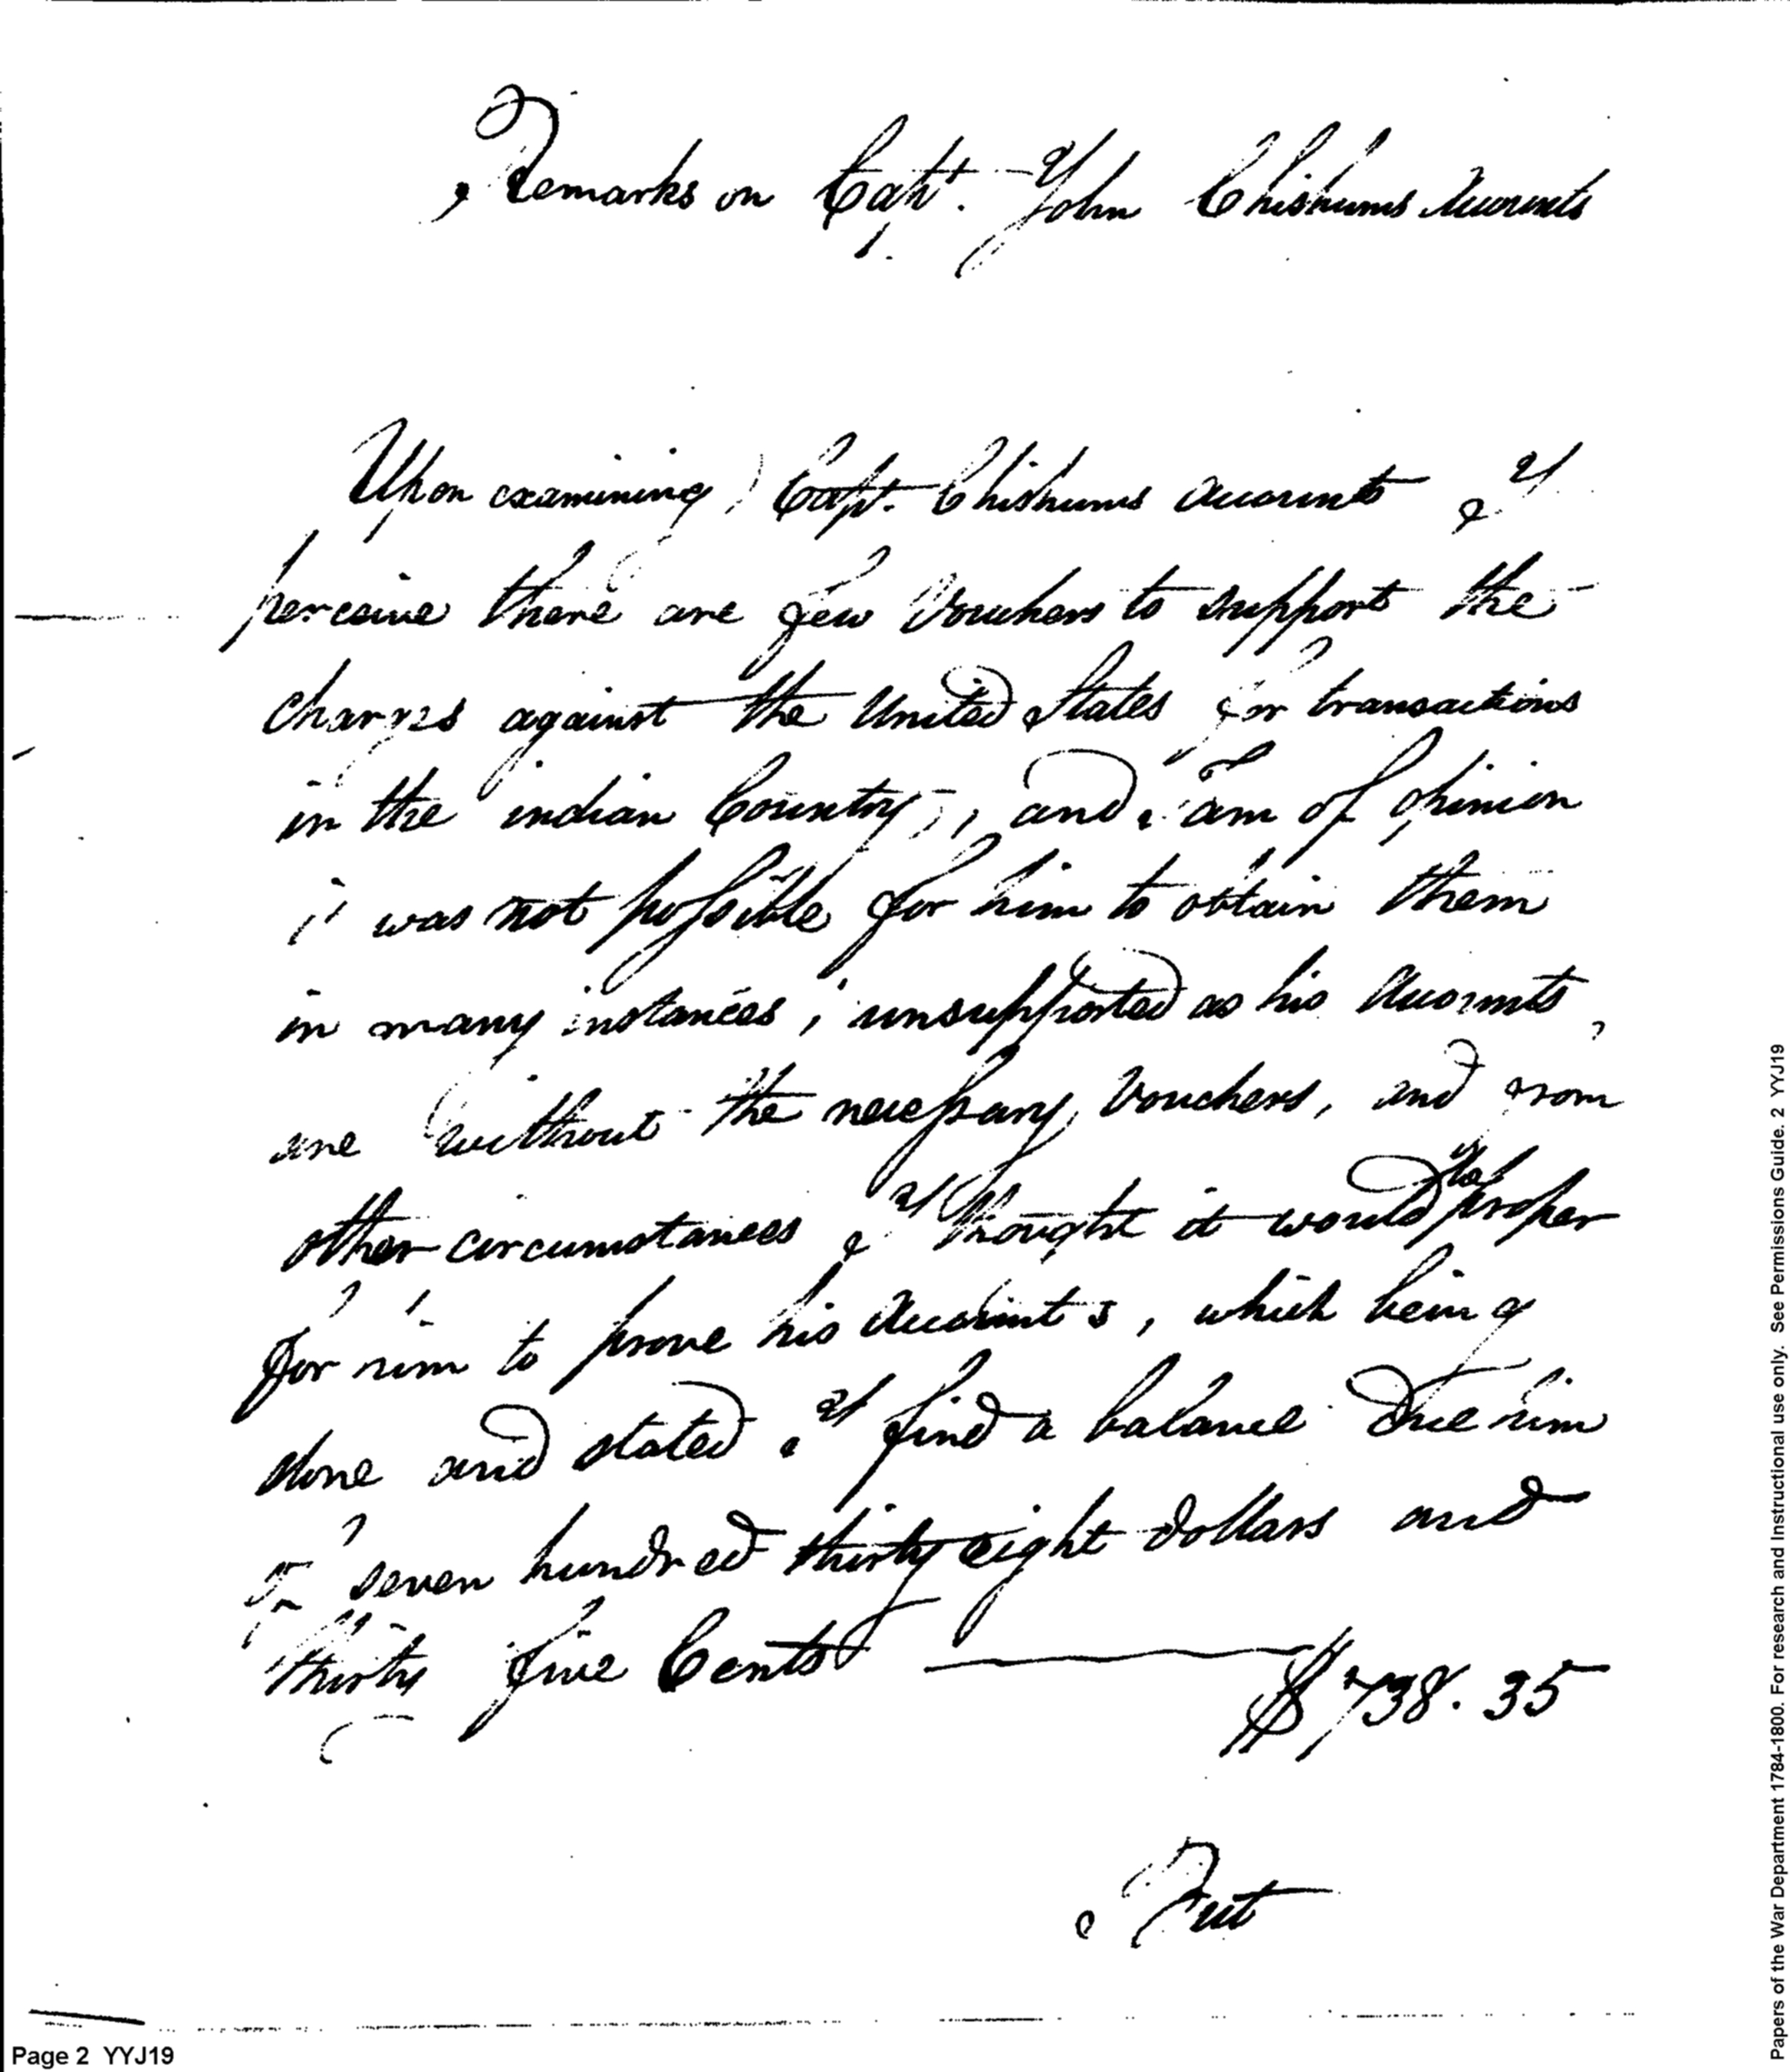 Remarks on Capt. John Chishums Accounts
Upon examining Capt. Chishums accounts I
perceive there are few Vouchers to support the
charges against the United States for transactions
in the indian Country, and am of opinion
it was not possible for him to obtain them
in many instances, unsupported as his Accounts
are without the necessary Vouchers, and from
other circumstances I thought it would be proper
for him to prove his Accounts, which being
done and stated I find a balance due him
of seven hundred thirty eight dollars and
thirty five Cents $738.35
But
Page 2 YYJ19
Papers of the War Department 1784-1800. For research and Instructional use only. See Permissions Guide. 2 YYJ19